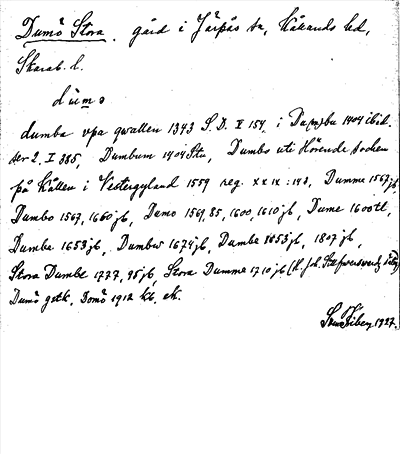 Dumö Stora. gård i Järpås sn, Kållands hd,
Skarab. l.
dumö
dumba vpa qwallen 1343 S.D. V 154. i Da(m)bu 1404 ibid.
ser 2. I 385, Dumbum 1404 Stu, Dumbo uti Härende socken
på Kållen i Vestergylland 1559 reg. XXIX:143, Dumme 1567 jb,
Dumbo 1567, 1660 jb, Dumo 1569, 85, 1600, 1610 jb, Dume 1600 tl,
Dumbe 1653 jb, Dumbw 1674 jb, Dumbe 1653 jb, 1807 jb,
Stora Dumbe 1777, 95 jb, Stora Dumme 1710 jb
Dumö gstk. Domö 1912 kb. ek.
1927.